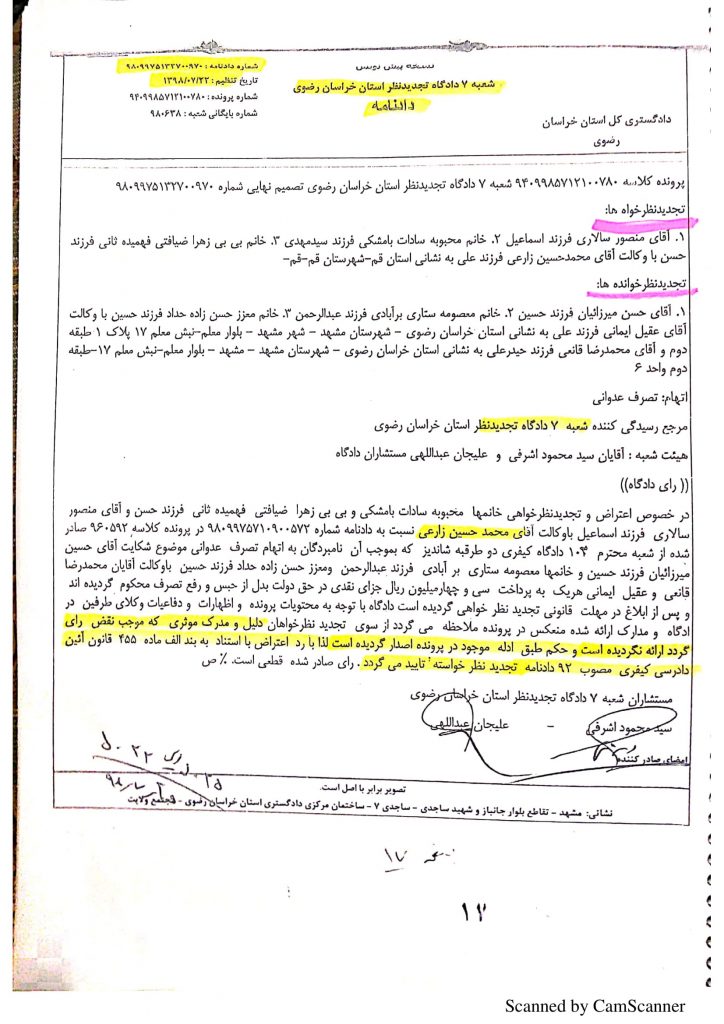 نسخه پیش نویس
شعبه ۷ دادگاه تجدیدنظر استان خراسان رضوی
دادنامه
شماره دادنامه : ۹۸۰۹۹۷۵۱۳۲۷۰۰۹۷۰
تاریخ تنظیم : ۱۳۹۸/۰۷/۲۳
شماره پرونده : ۹۴۰۹۹۸۵۷۱۲۱۰۰۷۸۰
شماره بایگانی شعبه : ۹۸۰۶۳۸
دادگستری کل استان خراسان
رضوی
پرونده کلاسه ۹۴۰۹۹۸۵۷۱۲۱۰۰۷۸۰ شعبه ۷ دادگاه تجدیدنظر استان خراسان رضوی تصمیم نهایی شماره ۹۸۰۹۹۷۵۱۳۲۷۰۰۹۷۰
تجدیدنظرخواه ها:
۱. آقای منصور سالاری فرزند اسماعیل ۲. خانم محبوبه سادات بامشکی فرزند سیدمهدی ۳. خانم بی بی زهرا ضیافتی فهمیده ثانی فرزند
حسن با وکالت آقای محمدحسین زارعی فرزند علی به نشانی استان قم-شهرستان قم-قم-
تجدیدنظرخوانده ها:
۱. آقای حسن میرزائیان فرزند حسین ۲. خانم معصومه ستاری برآبادی فرزند عبدالرحمن ۳. خانم معزز حسن زاده حداد فرزند حسین با وکالت
آقای عقیل ایمانی فرزند علی به نشانی استان خراسان رضوی - شهرستان مشهد - شهر مشهد - بلوار معلم-نبش معلم ۱۷ پلاک ۱ طبقه
دوم و آقای محمدرضا قانعی فرزند حیدرعلی به نشانی استان خراسان رضوی - شهرستان مشهد - مشهد - بلوار معلم-نبش معلم ۱۷-طبقه
دوم واحد ۶
اتهام: تصرف عدوانی
مرجع رسیدگی کننده شعبه ۷ دادگاه تجدیدنظر استان خراسان رضوی
هیئت شعبه : آقایان سید محمود اشرفی و علیجان عبداللهی مستشاران دادگاه
(( رای دادگاه))
در خصوص اعتراض و تجدیدنظرخواهی خانمها محبوبه سادات بامشکی و بی بی زهرا ضیافتی فهمیده ثانی فرزند حسن و آقای منصور
سالاری فرزند اسماعیل باوکالت آقای محمد حسین زارعی نسبت به دادنامه شماره ۹۸۰۹۹۷۵۷۱۰۹۰۰۵۷۲ در پرونده کلاسه ۹۶۰۵۹۲ صادر
شده از شعبه محترم ۱۰۴ دادگاه کیفری دو طرقبه شاندیز که بموجب آن نامبردگان به اتهام تصرف عدوانی موضوع شکایت آقای حسین
میرزائیان فرزند حسین و خانمها معصومه ستاری بر آبادی فرزند عبدالرحمن ومعزز حسن زاده حداد فرزند حسین باوکالت آقایان محمدرضا
قانعی و عقیل ایمانی هریک به پرداخت سی و چهارمیلیون ریال جزای نقدی در حق دولت بدل از حبس و رفع تصرف محکوم گردیده اند
و پس از ابلاغ در مهلت قانونی تجدید نظر خواهی گردیده است دادگاه با توجه به محتویات پرونده و اظهارات و دفاعیات وکلای طرفین در
ادگاه و مدارک ارائه شده منعکس در پرونده ملاحظه می گردد از سوی تجدید نظرخواهان دلیل و مدرک موثری که موجب نقض رای
گردد ارائه نگردیده است و حکم طبق ادله موجود در پرونده اصدار گردیده است لذا با رد اعتراض با استناد به بند الف ماده ۴۵۵ قانون آئین
دادرسی کیفری مصوب ۹۲ دادنامه تجدید نظر خواسته تایید می گردد . رای صادر شده قطعی است. ٪ ص
مستشاران شعبه ۷ دادگاه تجدیدنظر استان خراسان رضوی
سید محمود اشرفی - علیجان عبداللهی
امضای صادر کننده
تصویر برابر با اصل است.
نشانی: مشهد - تقاطع بلوار جانباز و شهید ساجدی - ساجدی ۷ - ساختمان مرکزی دادگستری استان خراسان رضوی - مجتمع ولایت
۱۲
Scanned by CamScanner